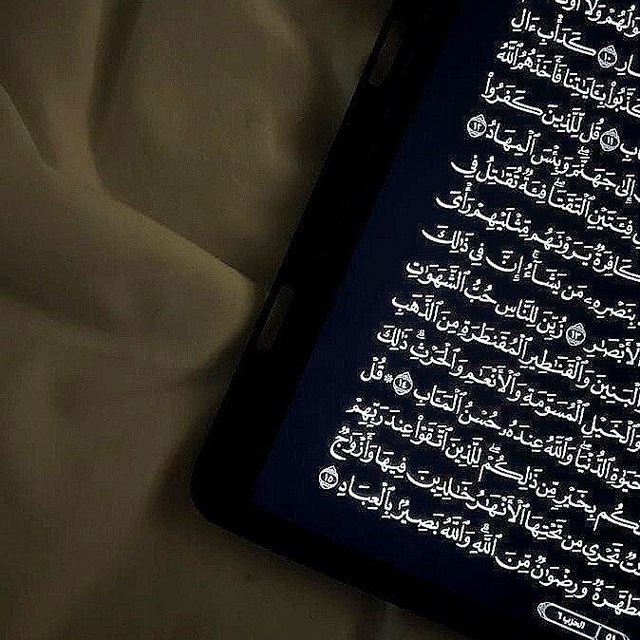 كَدَأْبِ ءَالِ
بِـَٔايَٰتِنَا فَأَخَذَهُمُ ٱللَّهُ
١١ قُل لِّلَّذِينَ كَفَرُوا۟
إِلَىٰ جَهَنَّمَ وَبِئْسَ ٱلْمِهَادُ ١٢
فِئَتَيْنِ ٱلْتَقَتَا فِئَةٌ تُقَٰتِلُ فِى
كَافِرَةٌ يَرَوْنَهُم مِّثْلَيْهِمْ رَأْىَ
بِنَصْرِهِۦ مَن يَشَآءُ إِنَّ فِى ذَٰلِكَ
ٱلْأَبْصَٰرِ ١٣ زُيِّنَ لِلنَّاسِ حُبُّ ٱلشَّهَوَٰتِ
وَٱلْقَنَٰطِيرِ ٱلْمُقَنطَرَةِ مِنَ ٱلذَّهَبِ
وَٱلْخَيْلِ ٱلْمُسَوَّمَةِ وَٱلْأَنْعَٰمِ وَٱلْحَرْثِ ذَٰلِكَ
ٱلدُّنْيَا وَٱللَّهُ عِندَهُۥ حُسْنُ ٱلْمَـَٔابِ ١٤ ۞ قُلْ
بِخَيْرٍ مِّن ذَٰلِكُمْ لِلَّذِينَ ٱتَّقَوْا۟ عِندَ رَبِّهِمْ
تَجْرِى مِن تَحْتِهَا ٱلْأَنْهَٰرُ خَٰلِدِينَ فِيهَا وَأَزْوَٰجٌ
مُّطَهَّرَةٌ وَرِضْوَٰنٌ مِّنَ ٱللَّهِ وَٱللَّهُ بَصِيرٌۢ بِٱلْعِبَادِ ١٥
٥١ الحزب ٦